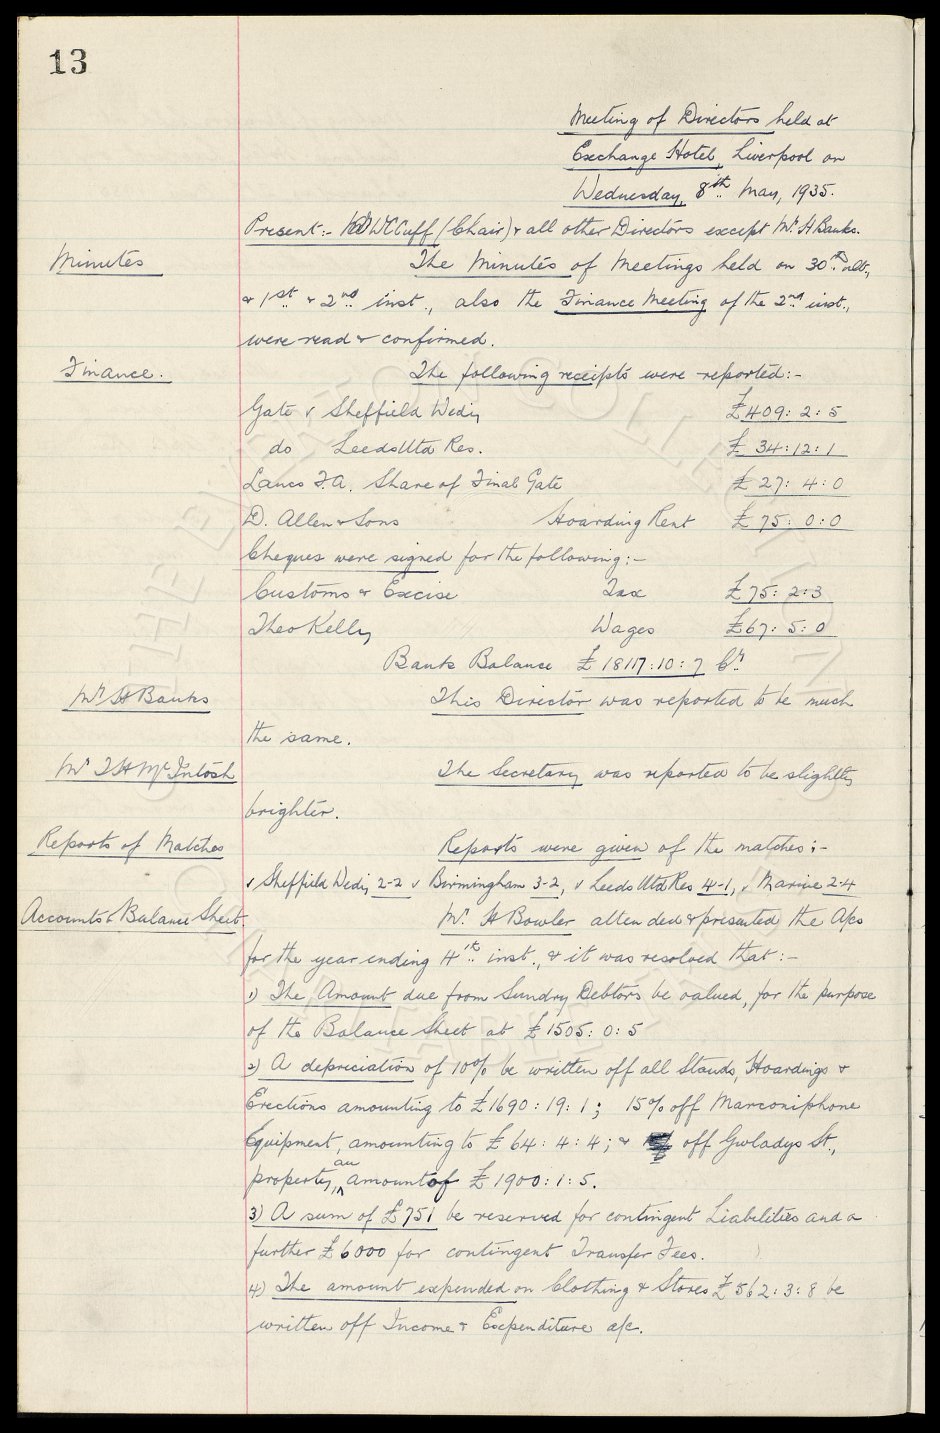 13
Meeting of Directors held at
Exchange Hotel, Liverpool on
Wednesday, 8th May, 1935.
Present:- WC Cuff (Chair) & all other Directors except Mr. H Banks.
Minutes
The Minutes of Meetings held on 30th ult.,
& 1st & 2nd inst., also the Finance Meeting of the 2nd inst.,
were read & confirmed.
Finance.
The following receipts were reported:-
Gate v Sheffield Wedy £409:2:5
do Leeds Utd Res. £34:12:1
Lancs F.A. Share of Final Gate £27:4:0
D. Allen & Sons Hoarding Rent £75:0:0
Cheques were signed for the following:-
Customs & Excise Tax £75:2:3
Theo Kelly Wages £67:5:0
Bank Balance £18117:10:7 Cr
Mr H Banks
This Director was reported to be much
the same.
Mr T H McIntosh
The Secretary was reported to be slightly
brighter.
Reports of Matches
Reports were given of the matches:-
v Sheffield Wedy 2-2 v Birmingham 3-2, v Leeds Utd Res 4-1, v Marine 2-4
Accounts & Balance Sheet.
Mr. H Bowler attended & presented the A/cs
for the year ending 4th inst., & it was resolved that:-
1) The Amount due from Sundry Debtors be valued, for the purpose
of the Balance Sheet at £1505:0:5
2) A depreciation of 10% be written off all Stands, Hoardings &
Erections amounting to £1690:19:1; 15% off Marconiphone
Equipment, amounting to £64:4:4; & off Gwladys St.,
property, an amount of £1900:1:5.
3) A sum of £751 be reserved for contingent Liabilities and a
further £6000 for contingent Transfer Fees.
4) The amount expended on Clothing & Stores £562:3:8 be
written off Income & Expenditure a/c.
THE EVERTON COLLECTION
CHARITABLE TRUST